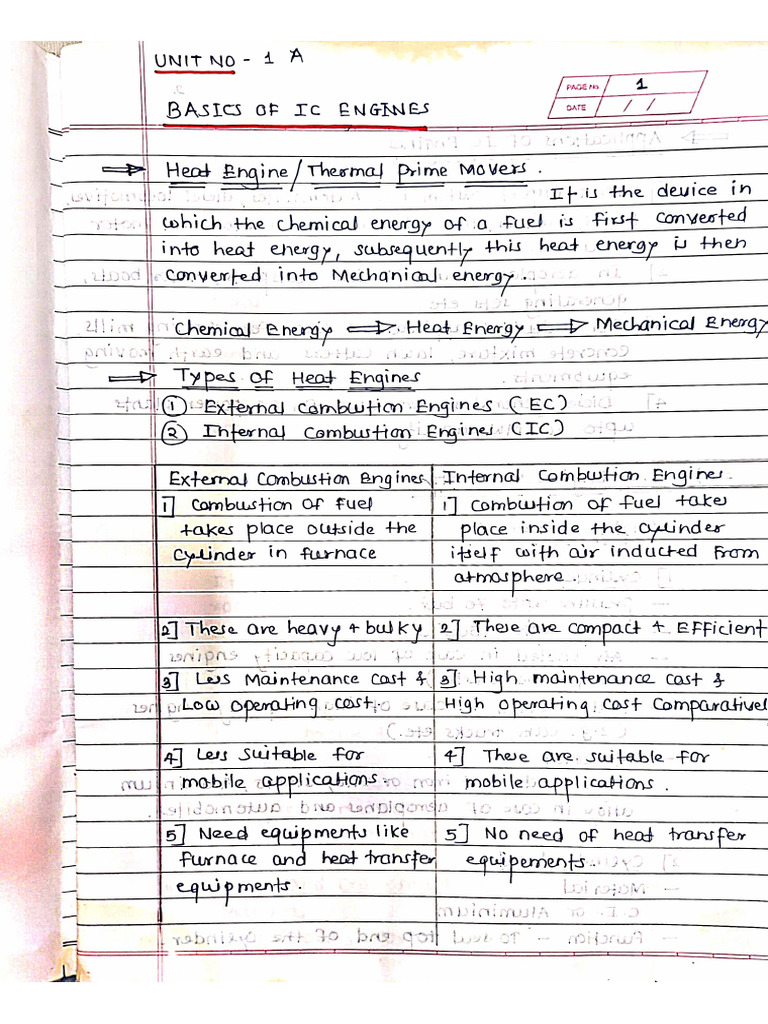 UNIT NO - 1 A
PAGE No. 1
DATE / /
BASICS OF IC ENGINES
⇒ Heat Engine/Thermal Prime Movers.
It is the device in
which the chemical energy of a fuel is first converted
into heat energy, subsequently this heat energy is then
converted into Mechanical energy.
Chemical Energy ⇒ Heat Energy ⇒ Mechanical Energy
⇒ Types of Heat Engines
① External combustion Engines (EC)
② Internal Combustion Engines (IC)
External Combustion Engines Internal Combustion Engines.
1] Combustion of fuel 1] Combustion of fuel takes
takes place outside the place inside the cylinder
cylinder in furnace itself with air inducted from
atmosphere.
2] These are heavy & bulky 2] These are compact & Efficient
3] Less Maintenance cost & 3] High maintenance cost &
Low operating cost. High operating cost Comparativel
4] Less suitable for 4] These are suitable for
mobile applications mobile applications.
5] Need equipments like 5] No need of heat transfer
furnace and heat transfer equipements.
equipments.